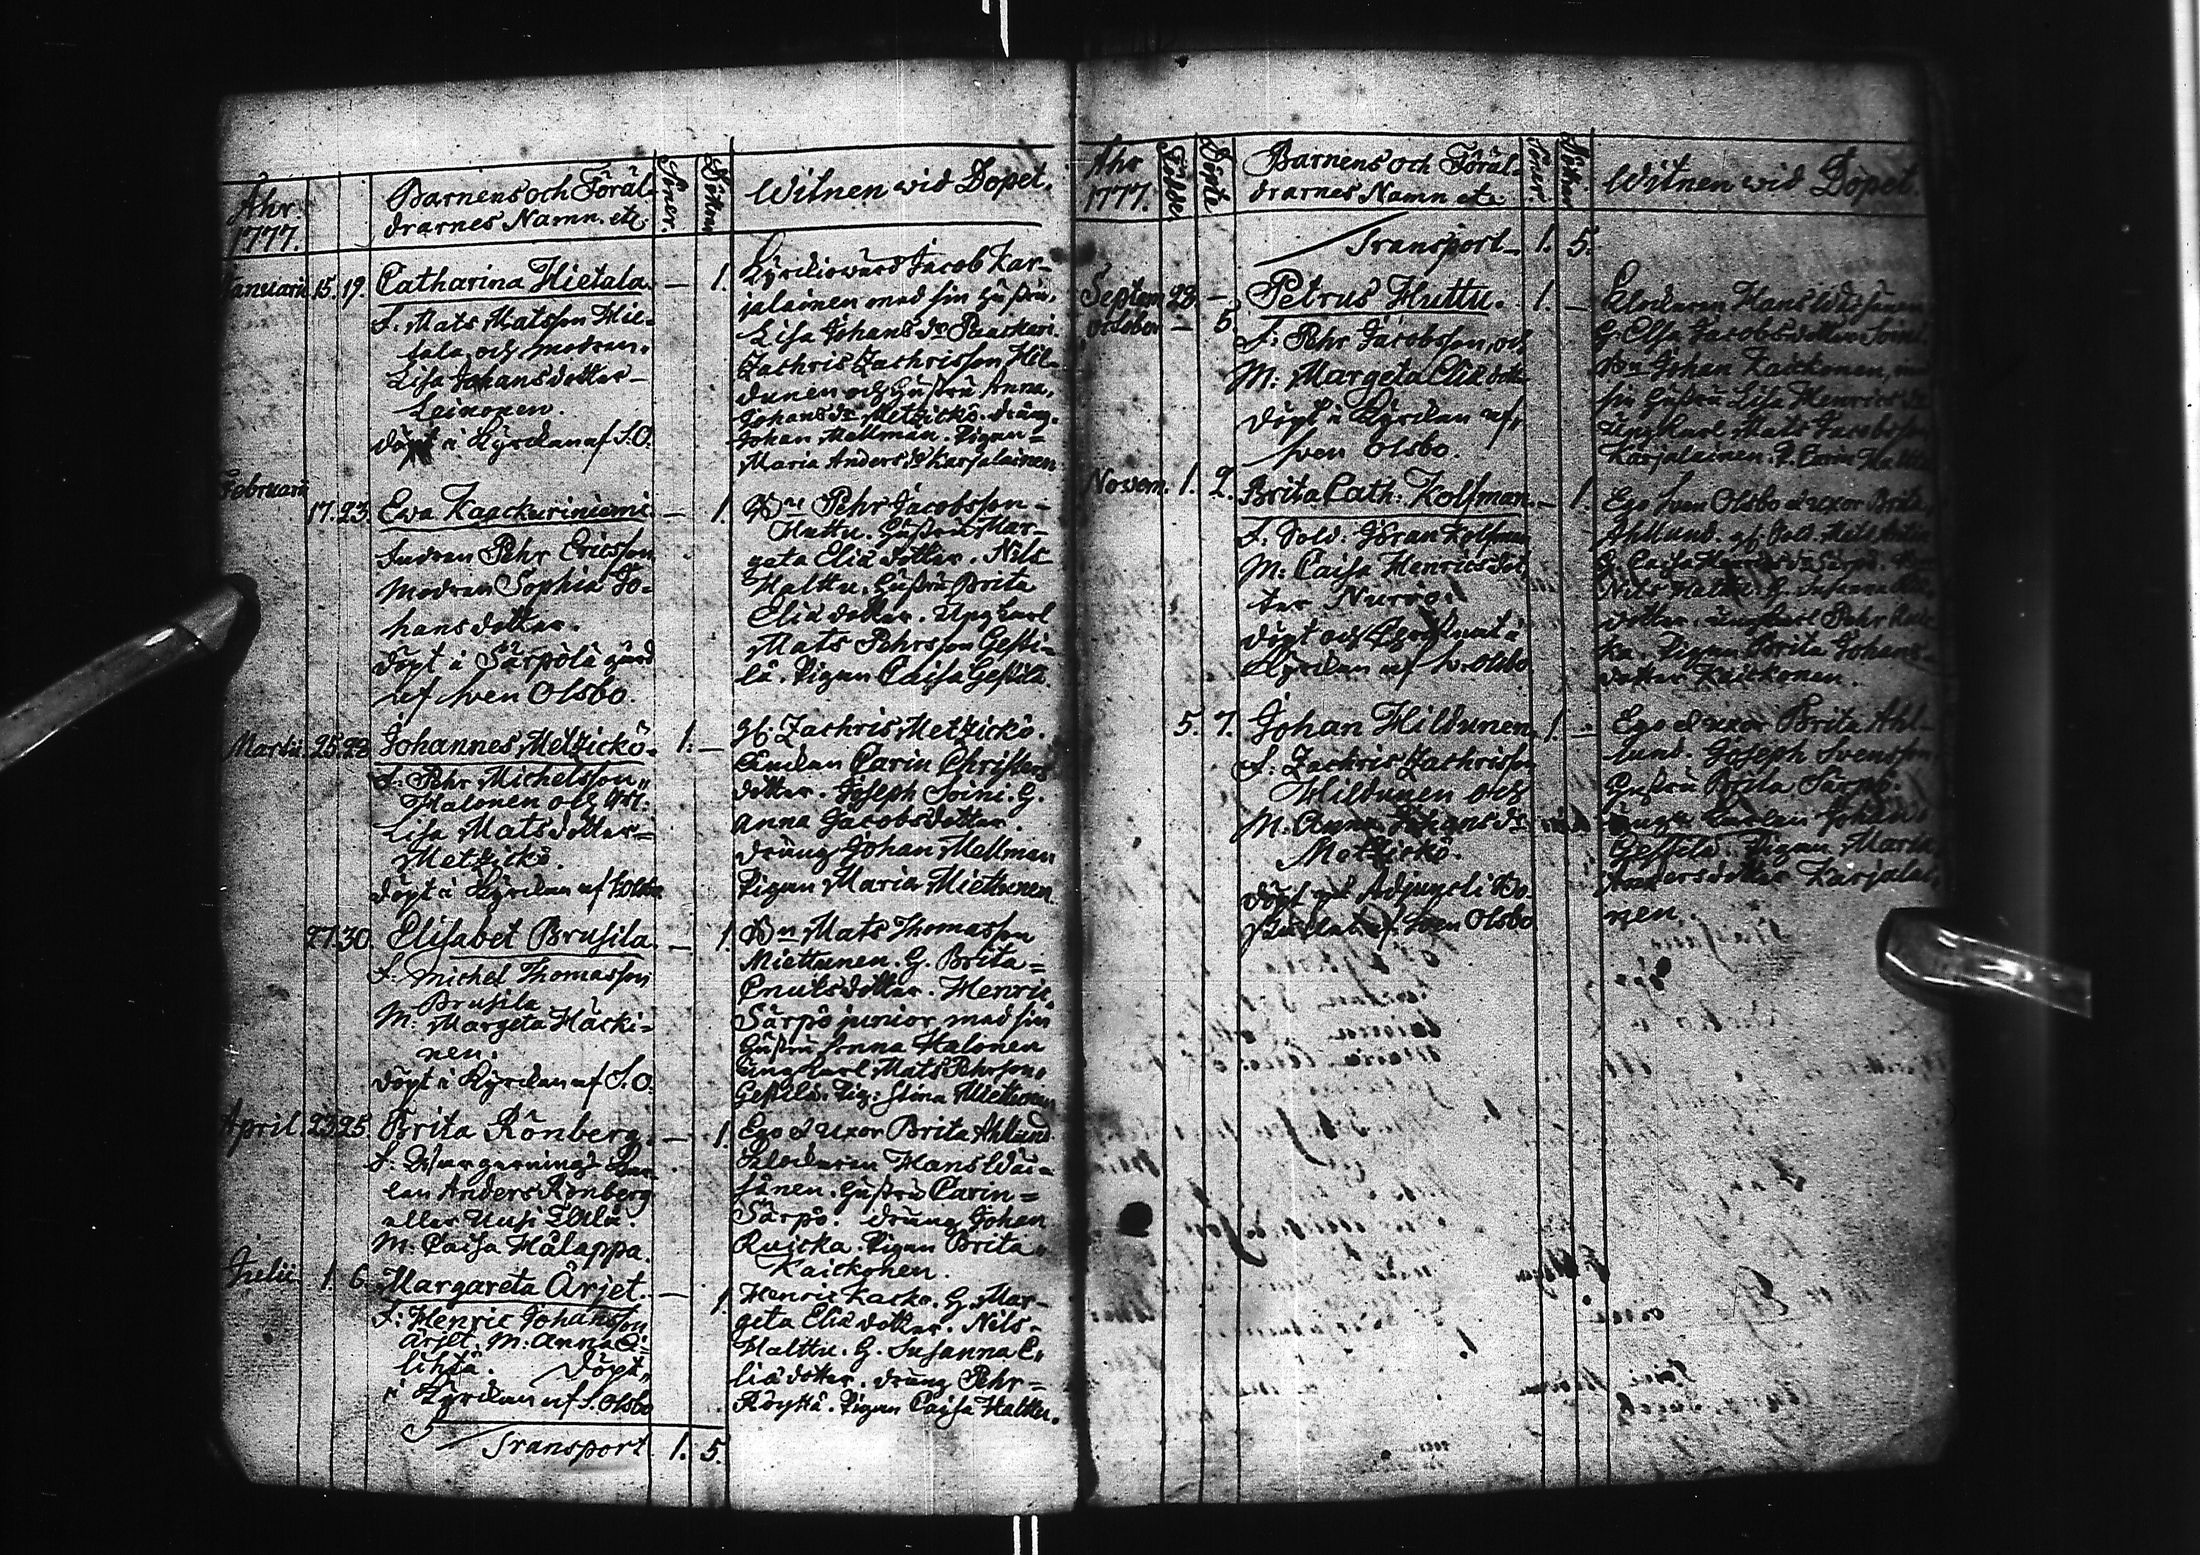 Åhr 1777.
Barnens och Föräl-
drarnes Namn. etc.
Söner.
Döttrar
Witnen wid Döpet.
Januarii 15. 19. Catharina Hietala. — 1.
F. Mats Matsson Hie-
tala, och modren
Lisa Johansdotter
Leinonen.
döpt i Kyrckan af S.O.
Kyrckiowärd Jacob Kar-
jalainen med sin hustru,
Lisa Johans dr Paackari
Zachris Zachrisson Hil-
dunen och hustru Anna,
Johans dr Metzickö. dräng.
Johan Mellman. Pigan =
Maria Anders dr Karjalainen
Februarii
17. 23. Ewa Kaackuriniemi — 1.
Fadren Pehr Ericsson
modren Sophia Jo-
hansdotter.
döpt i Särpölä gård
af Sven Olsbo.
Bn Pehr Jacobsson -
Huttu. hustru Mar-
geta Eliædotter. Nils
Halttu. hustru Brita
Eliædotter. Ung karl
Mats Pehrsson Gesti-
lä. Pigan Caisa Gestilä.
Martii 25. 28 Johannes Metzickö. 1. —
F. Pehr Michelsson
Halonen och M:
Lisa Matsdotter =
Metzickö.
döpt i Kyrckan af S. Olsbo
Zachris Metzickö.
Enckan Carin Christers
dotter. Joseph Soini. G.
Anna Jacobsdotter.
dräng Johan Mellman
Pigan Maria Miettunen.
27. 30. Elisabet Brusila. — 1
F. Michel Thomasson
Brusila
M: Margeta Häcki-
nen.
döpt i Kyrckan af S.O.
Bn Mats Thomasson
Miettunen. G. Brita =
Cnutsdotter. Henric
Särpö junior med sin
hustru Anna Halonen
ung karl Mats Pehrson,
Gestilä. Pig: Stina Miettunen
April 23 25 Brita Rönberg. — 1.
F.
Anders Rönberg
eller Uusi
M. Caisa Hälappa.
Ego et uxor Brita Ahllund
Klockaren Hans Wäi-
sänen. hustru Carin =
Särpö. dräng Johan
Raicka. Pigan Brita
Kaickonen.
Julii 1. 6. Margareta Ärjet. — 1.
F: Henric Johansson
Ärjet. M: Anna
döpt,
i Kyrckan af S. Olsbo
Henric Kacko. G. Mar-
geta Eliædotter. Nils -
Halttu. G. Susanna E.
liædotter. dräng Pehr =
Röyttä. Pigan Caisa Halttu.
Transport 1. 5.
Åhr 1777.
Födde
Döpte
Barnens och Föräl-
drarnes Namn etc.
Söner.
Döttrar
Witnen wid Döpet.
Transport - 1. 5.
Septem 28. — Petrus Huttu. 1. —
October — 5.
F: Pehr Jacobsson, och
M: Margeta Eliædotter
döpt i Kyrckan af,
Sven Olsbo.
Klockaren Hans Wäisänen
G. Elsa Jacobsdotter Soini.
Bn Johan Kaickonen, med
sin hustru Lisa Henrics dr
ung karl Mats Jacobsson
Karjalainen. P. Carin Halttu
Novem. 1. 2. Brita Cath. Kolfman. — 1.
F. Sold. Göran Kolfman
M: Caisa Henricsdot
ter Nurro.
döpt och Christnat i
Kyrckan af Sv. Olsbo
Ego Sven Olsbo et uxor Brita,
Ahllund. Sold. Mats
G. Caisa Särpö. Bn
Nils Halttu. G. Susanna
dotter. ung karl Pehr Raic
ka. Pigan Brita Johans-
dotter Kaickonen.
5. 7. Johan Hildunen. 1. —
F. Zachris Zachrisson
Hildunen och
M. Anna Johans dr
Metzickö.
döpt på Adjuncti Bo
stället af Sven Olsbo
Ego et uxor Brita Ahl-
lund. Joseph Svensson
hustru Brita Särpö.
unga karlen Johan
Gestilä. Pigan Maria,
Andersdotter Karjalai,
nen.